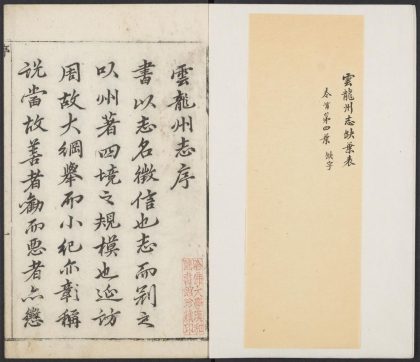 雲龍州志缺葉表
卷首第四葉 缺字
雲龍州志序
書以志名徵信也志而别之
以州著四境之規模也延訪
周故大綱舉而小紀亦彰稱
説當故善者勸而惡者亦懲
哈佛大學漢和
圖書館珍藏印
序